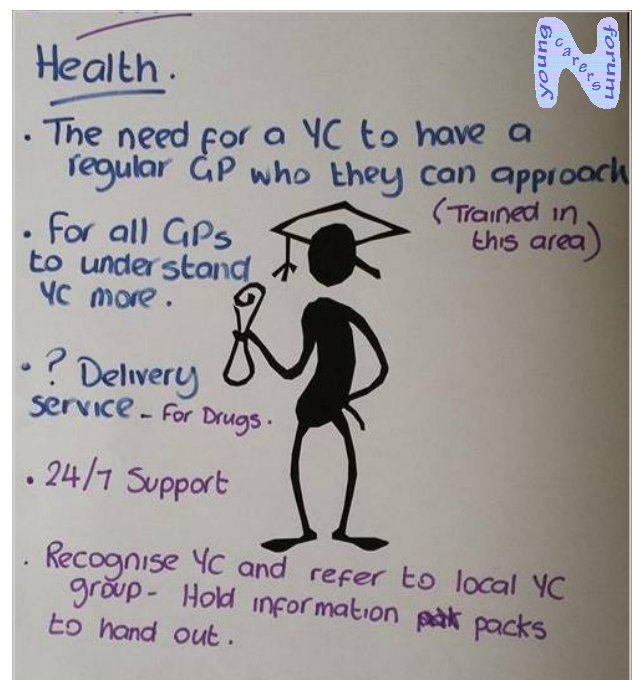 young
carers
forum
Health.
· The need for a YC to have a
regular GP who they can approach
(Trained in
this area)
· For all GPs
to understand
YC more.
· ? Delivery
service - For Drugs.
· 24/7 Support
· Recognise YC and refer to local YC
group - Hold information packs
to hand out.